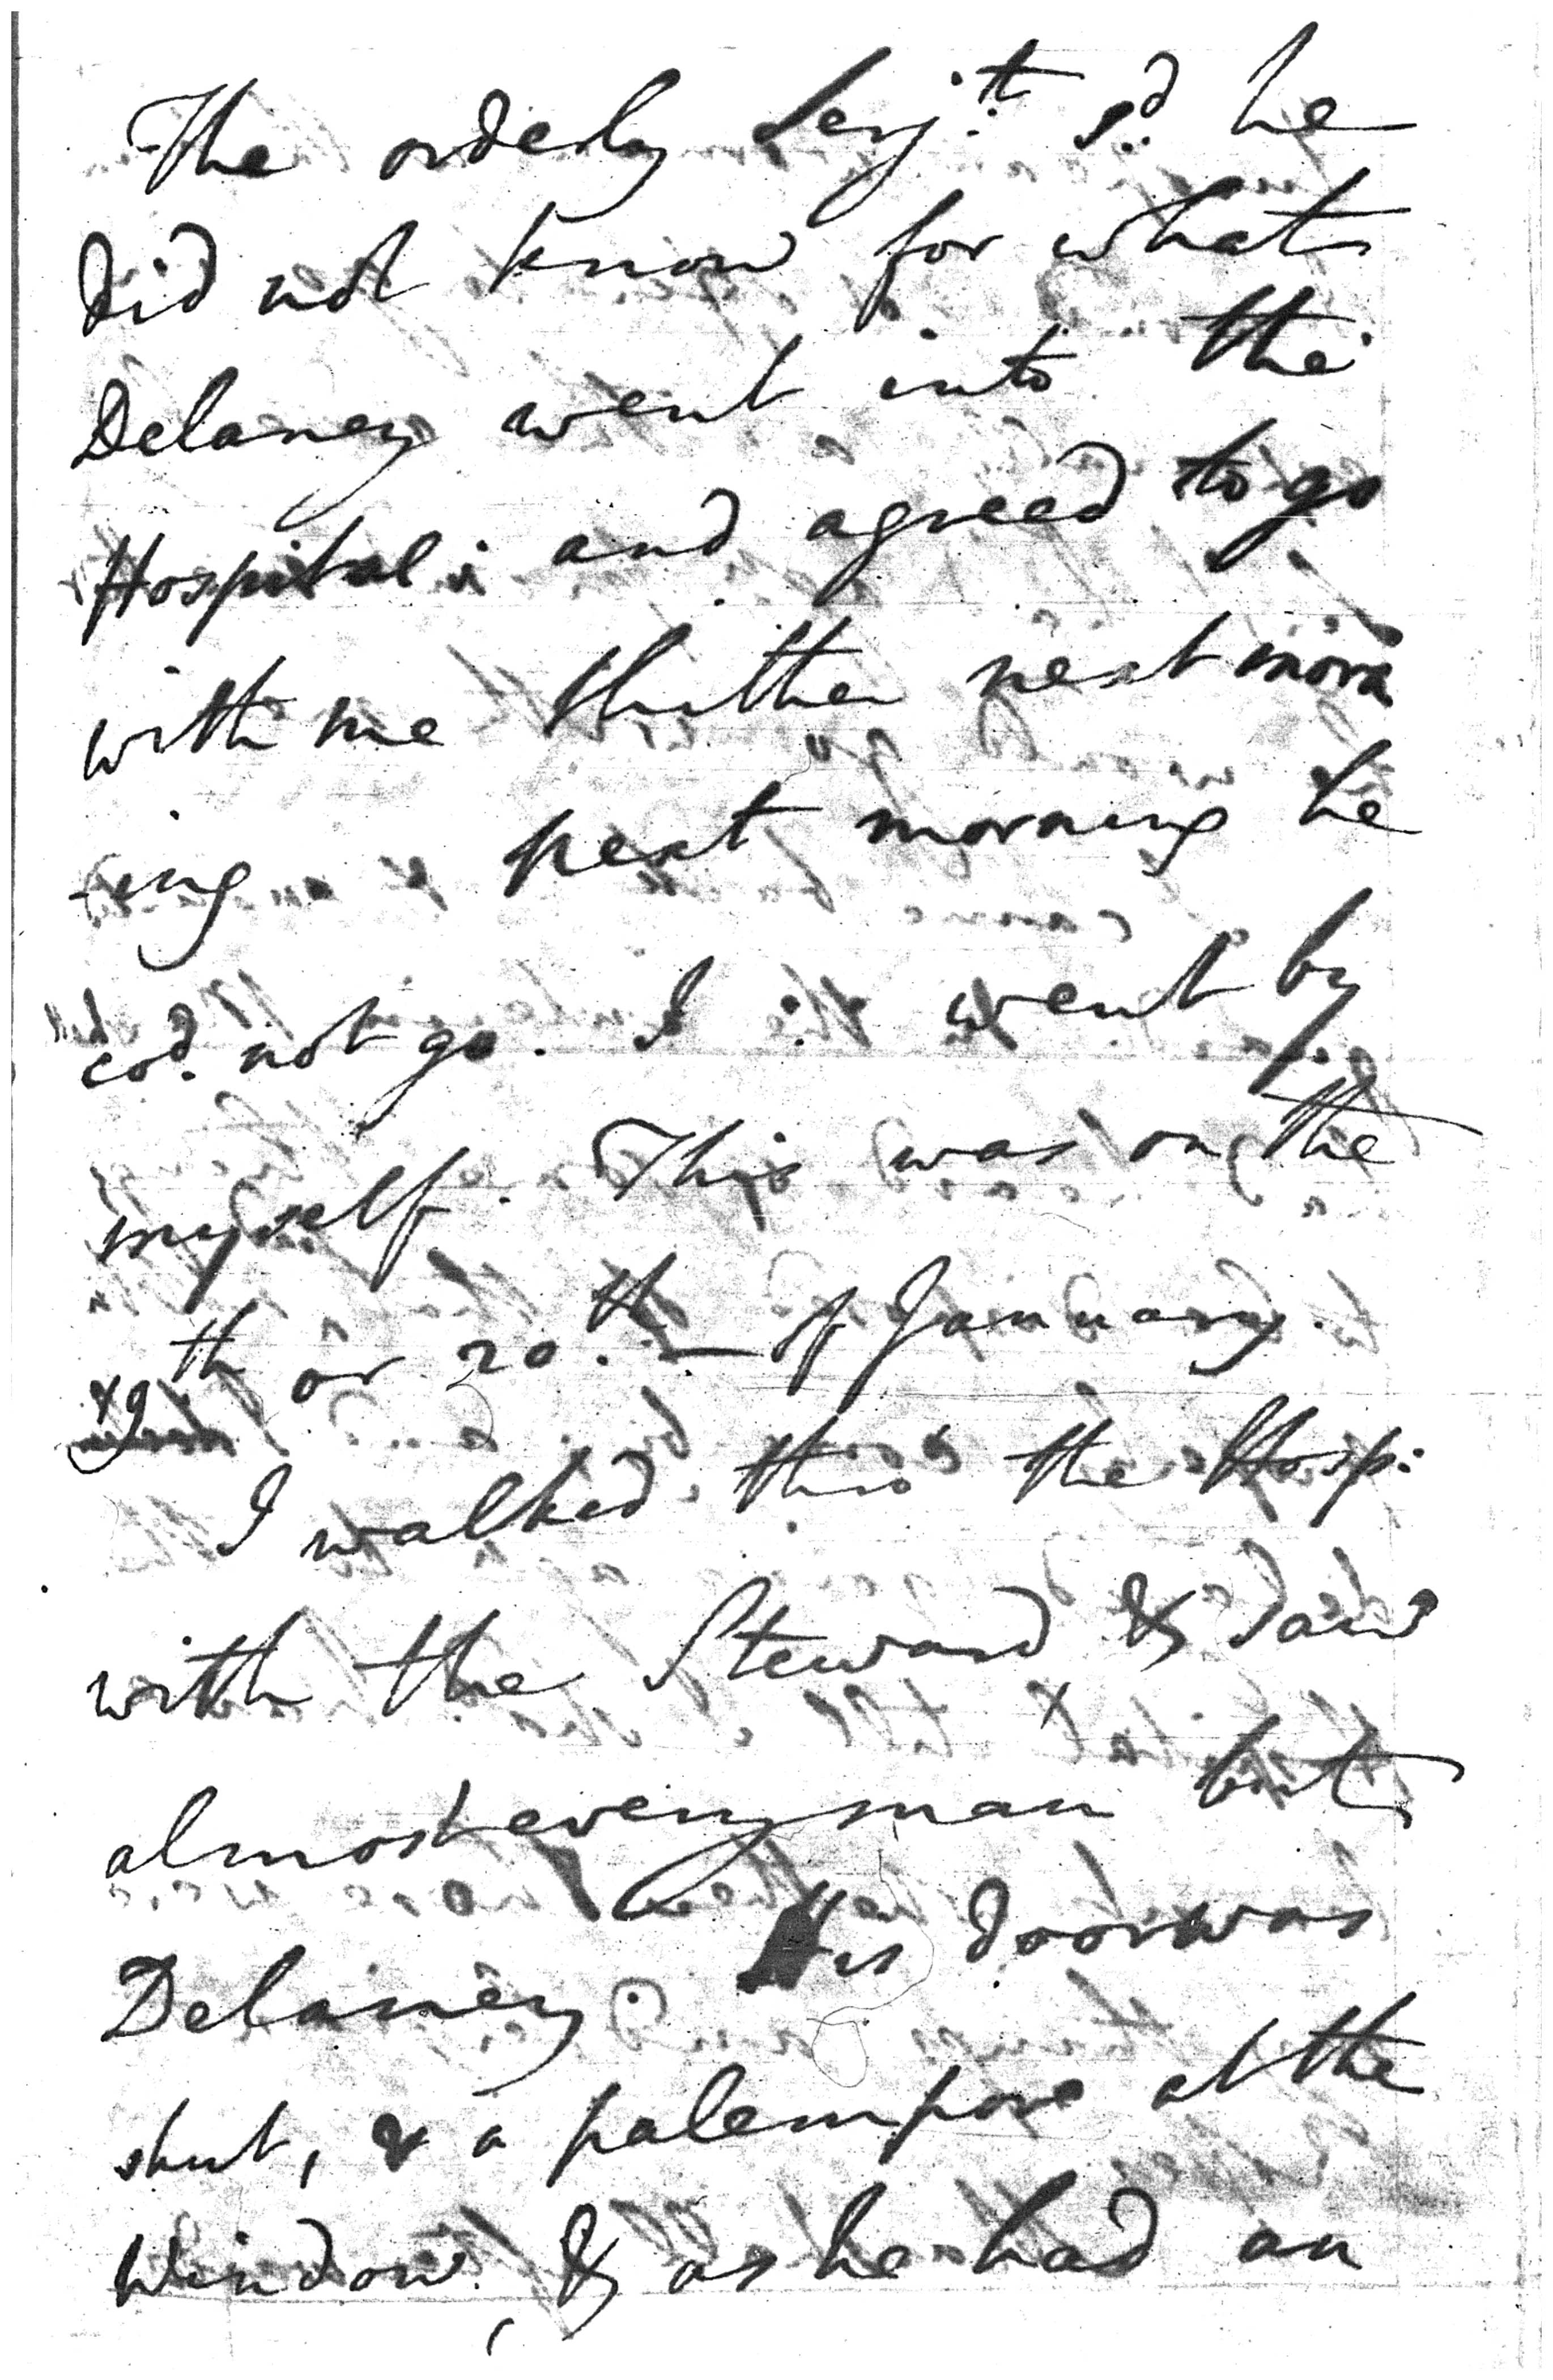 The orderly Serj.t sd. he
did not know for what
Delaney went into the
Hospital; and agreed to go
with me thither next morn
-ing next morning he
cod. not go. I went by
myself. This was on the
19th or 20.th of January.
I walked thro' the Hosp:
with the Steward & saw
almost every man but
Delaney. His door was
shut, & a palempore at the
window, & as he had an